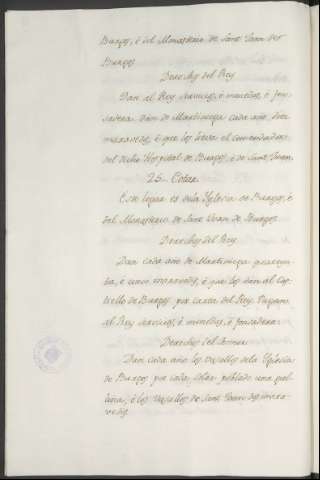 Burgos, é del Monasterio de Sant Joan de
Burgos
Derechos del Rey
Dan al Rey servicios, é monedas, é fon-
sadera. Dan de Martiniega cada año diez
maravedis, é que los lieva el comendador
del dicho Hospital de Burgos, é de Sant Juan.
25. Cotar
Este logar es de la Yglesia de Burgos, é
del Monasterio de Sant Joan de Burgos.
Derechos del Rey
Dan cada año de Martiniega quaren-
ta, é cinco maravedis, é que los dan al Cas-
tiello de Burgos por carta del Rey. Pagan
al Rey servicios, é monedas, é fonsadera.
Derechos del Sennor
Dan cada año los vasallos de la Yglesia
de Burgos por cada solar poblado una ga-
llina, é los vasallos de Sant Joan dos mara-
vedis.